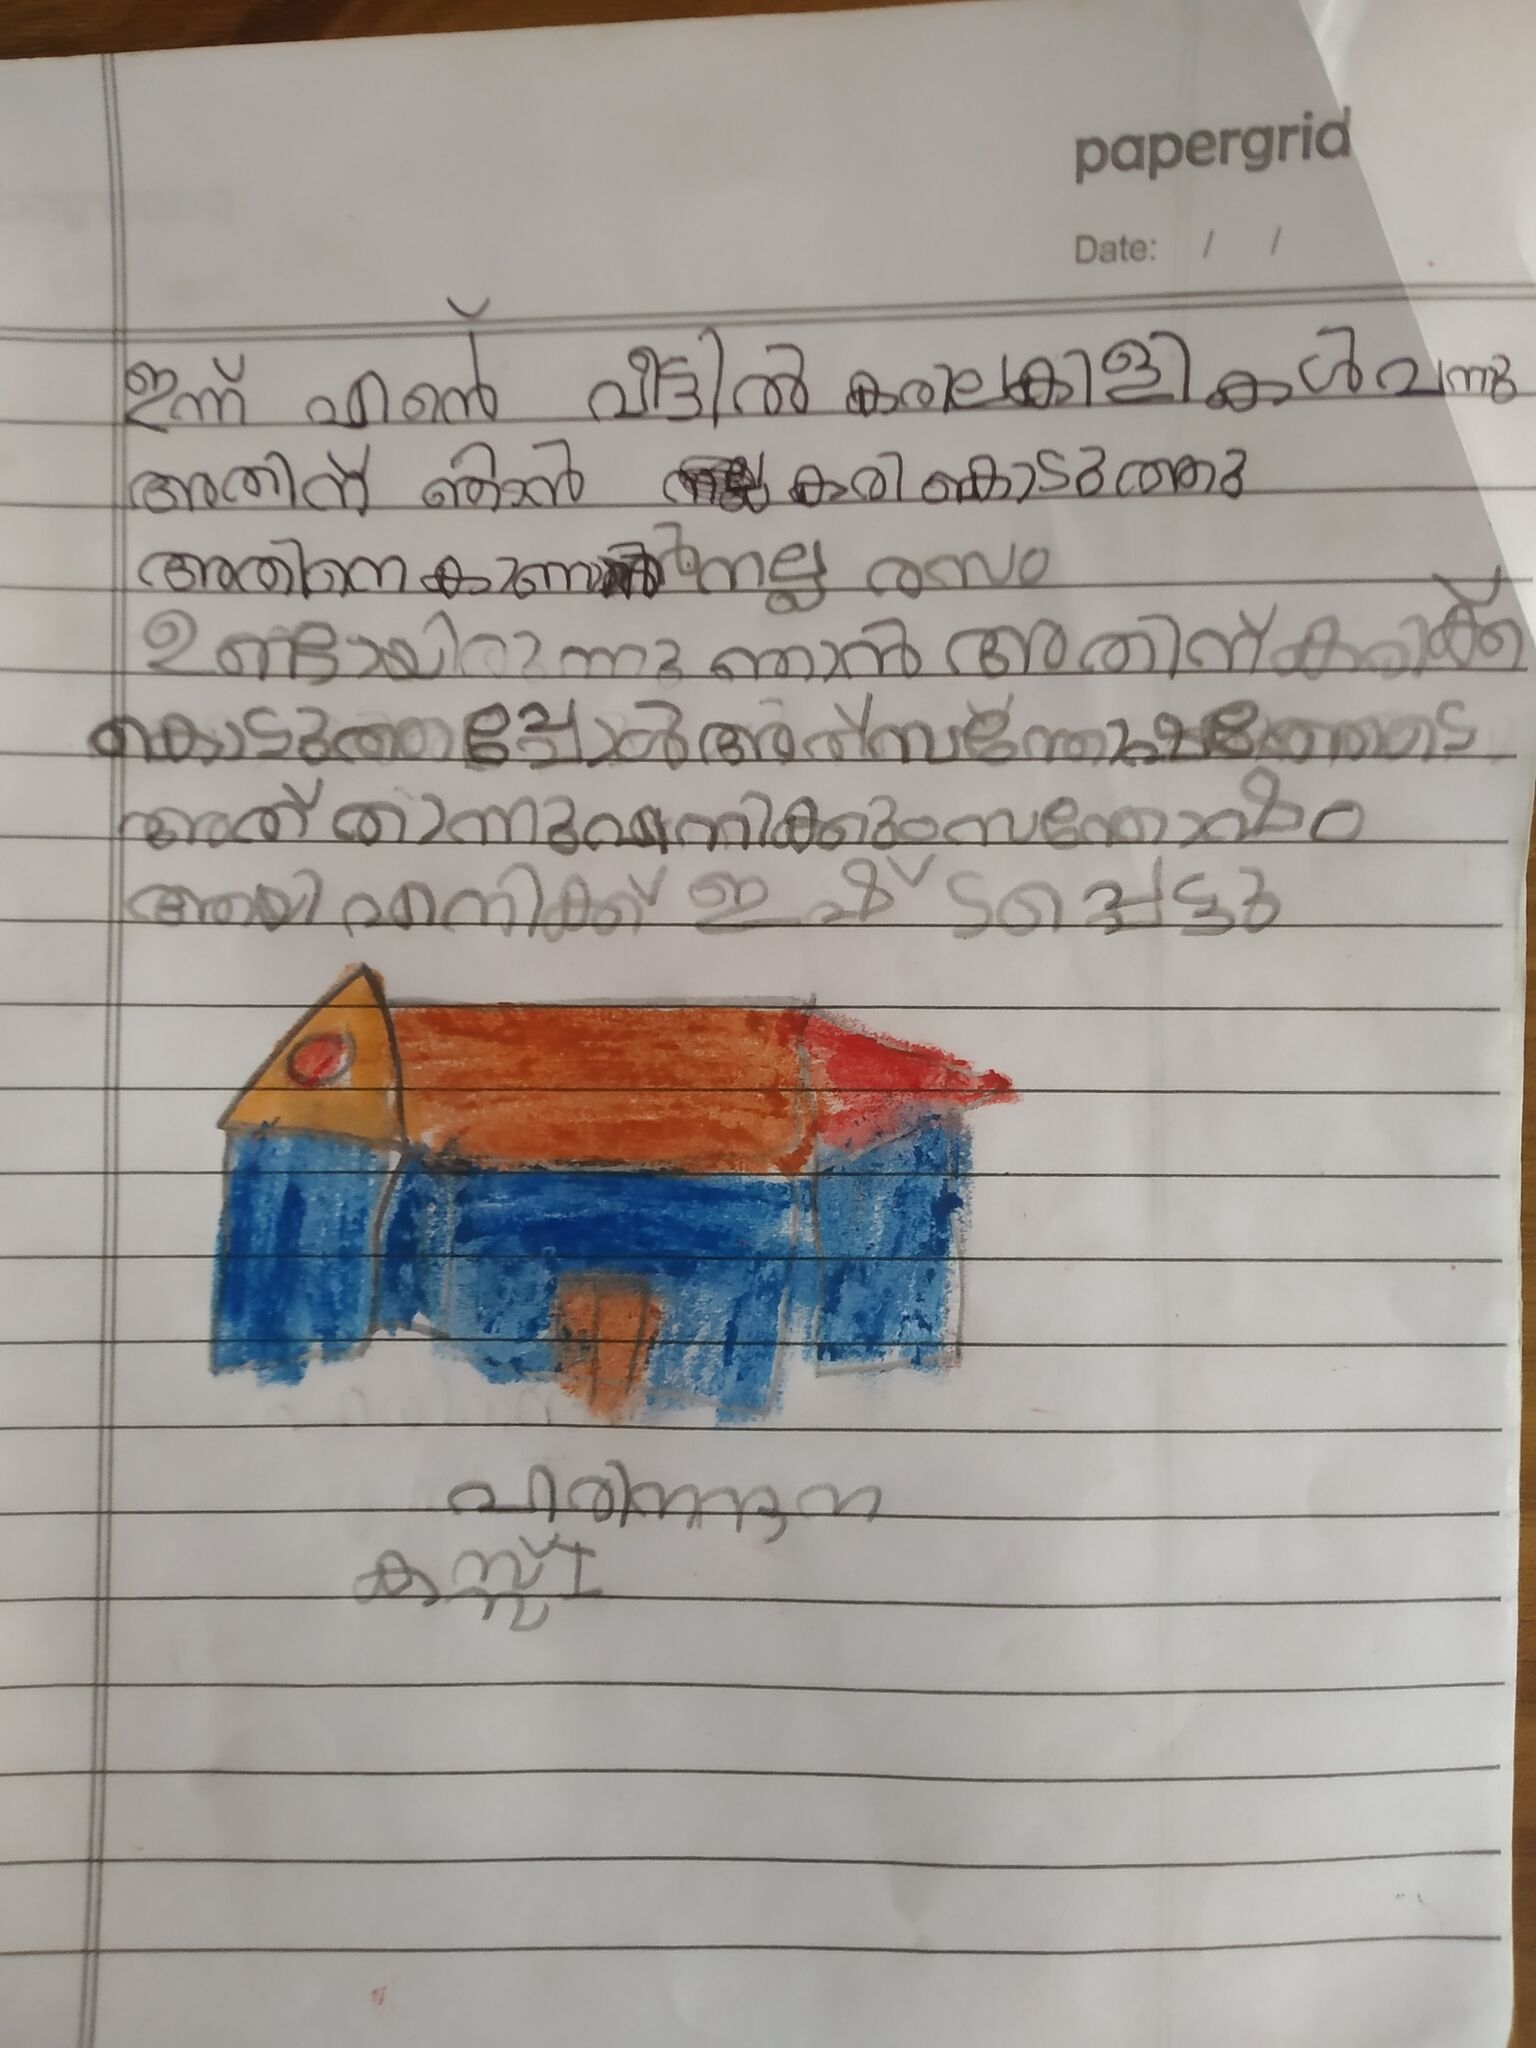 papergrid
Date: / /
ഇന്ന് എൻ്റെ വീട്ടിൽ കരിലകിളികൾ വന്നു
അതിന് ഞാൻ കരി കൊടുത്തു
അതിനെ കാണാൻ നല്ല രസം
ഉണ്ടായിരുന്നു ഞാൻ അതിന്
കൊടുത്തപ്പോൾ അത് സന്തോഷത്തോടെ
അത് തിന്നു എനിക്കും സന്തോഷം
ആയി എനിക്ക് ഇഷ്ടപ്പെട്ടു
ക്ലസ്സ് I